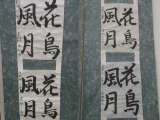 花鳥
風月
花鳥
風月
花鳥
風月
花鳥
風月